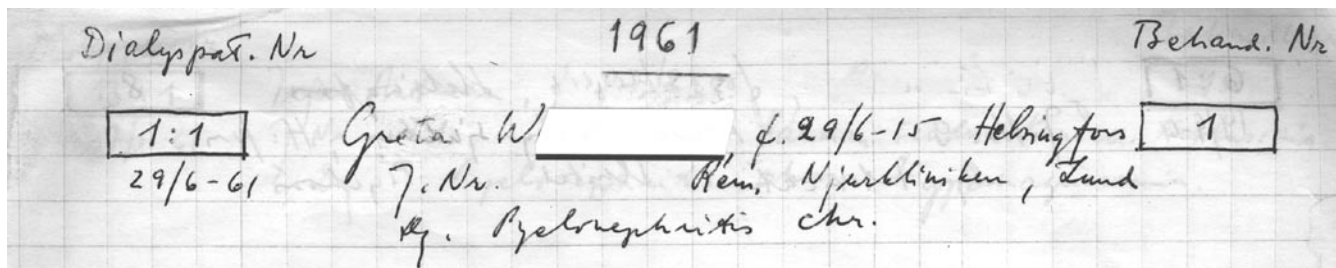 Dialyspat. Nr 1961 Behand. Nr
1:1 Greta W f. 29/6-15 Helsingfors 1
29/6-61 J. Nr. Rem. Njurkliniken, Lund
Dg. Pyelonephritis chr.